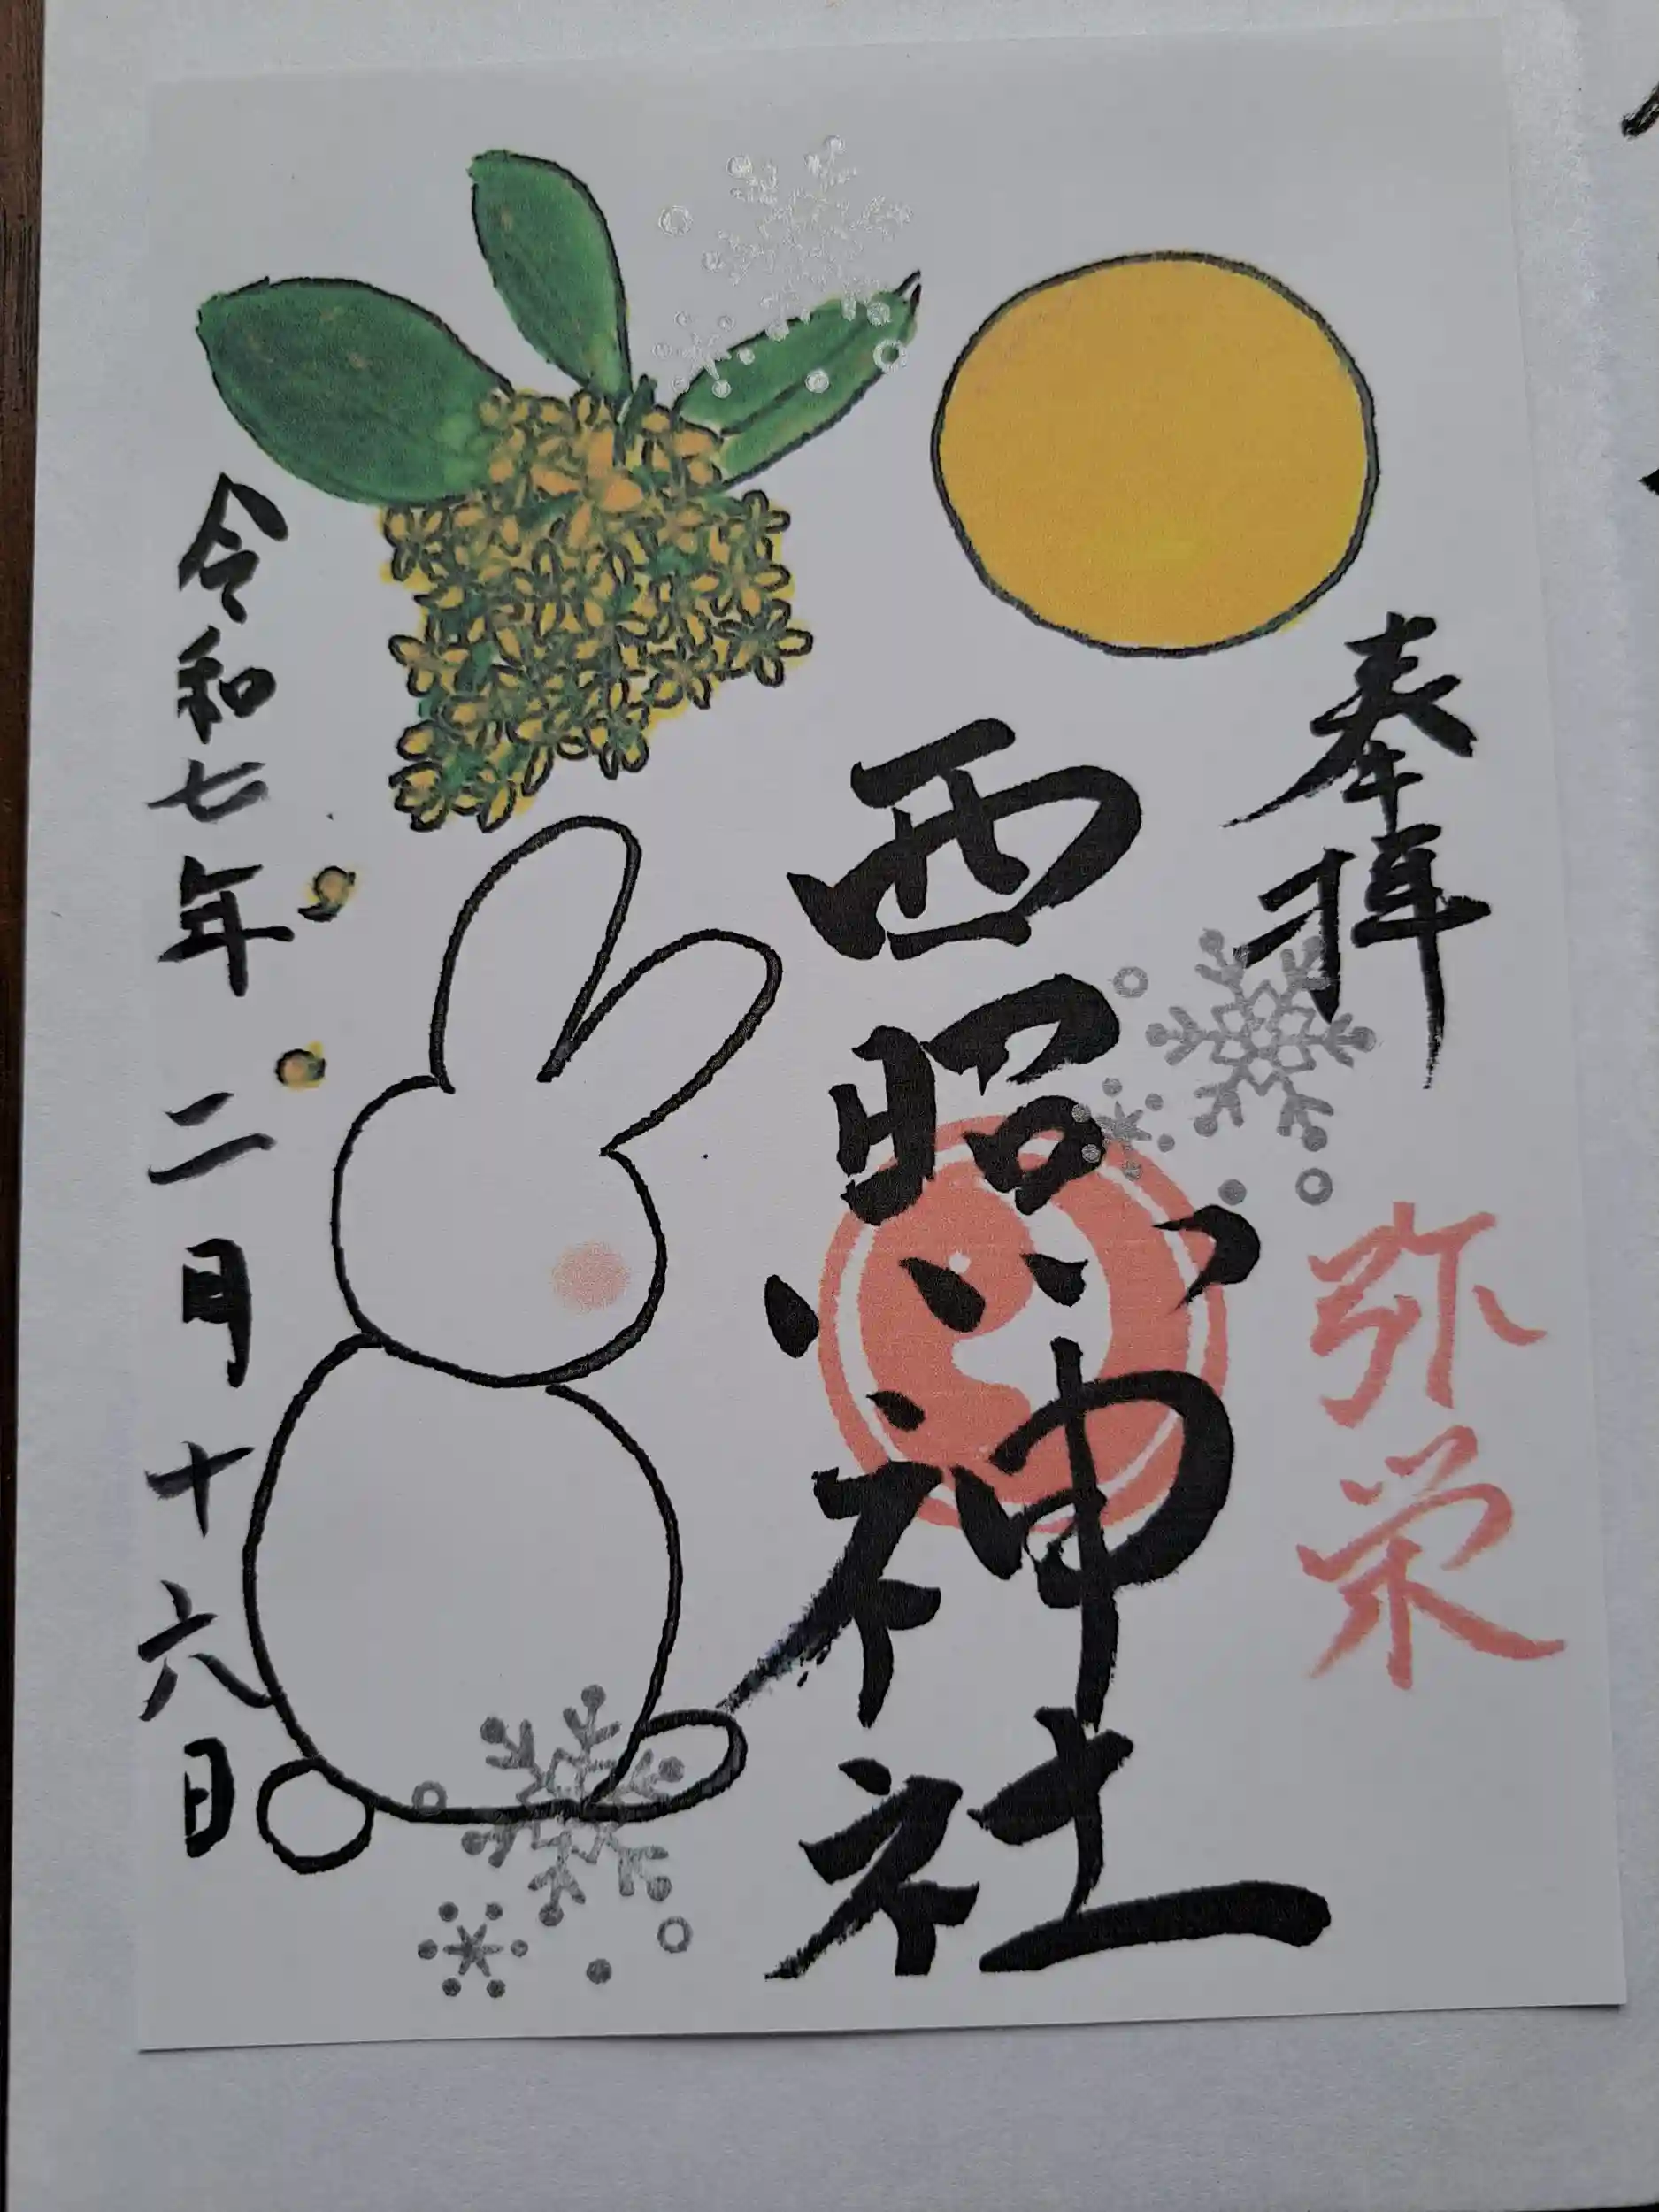 奉拝
弥栄
西照神社
令和七年二月十六日